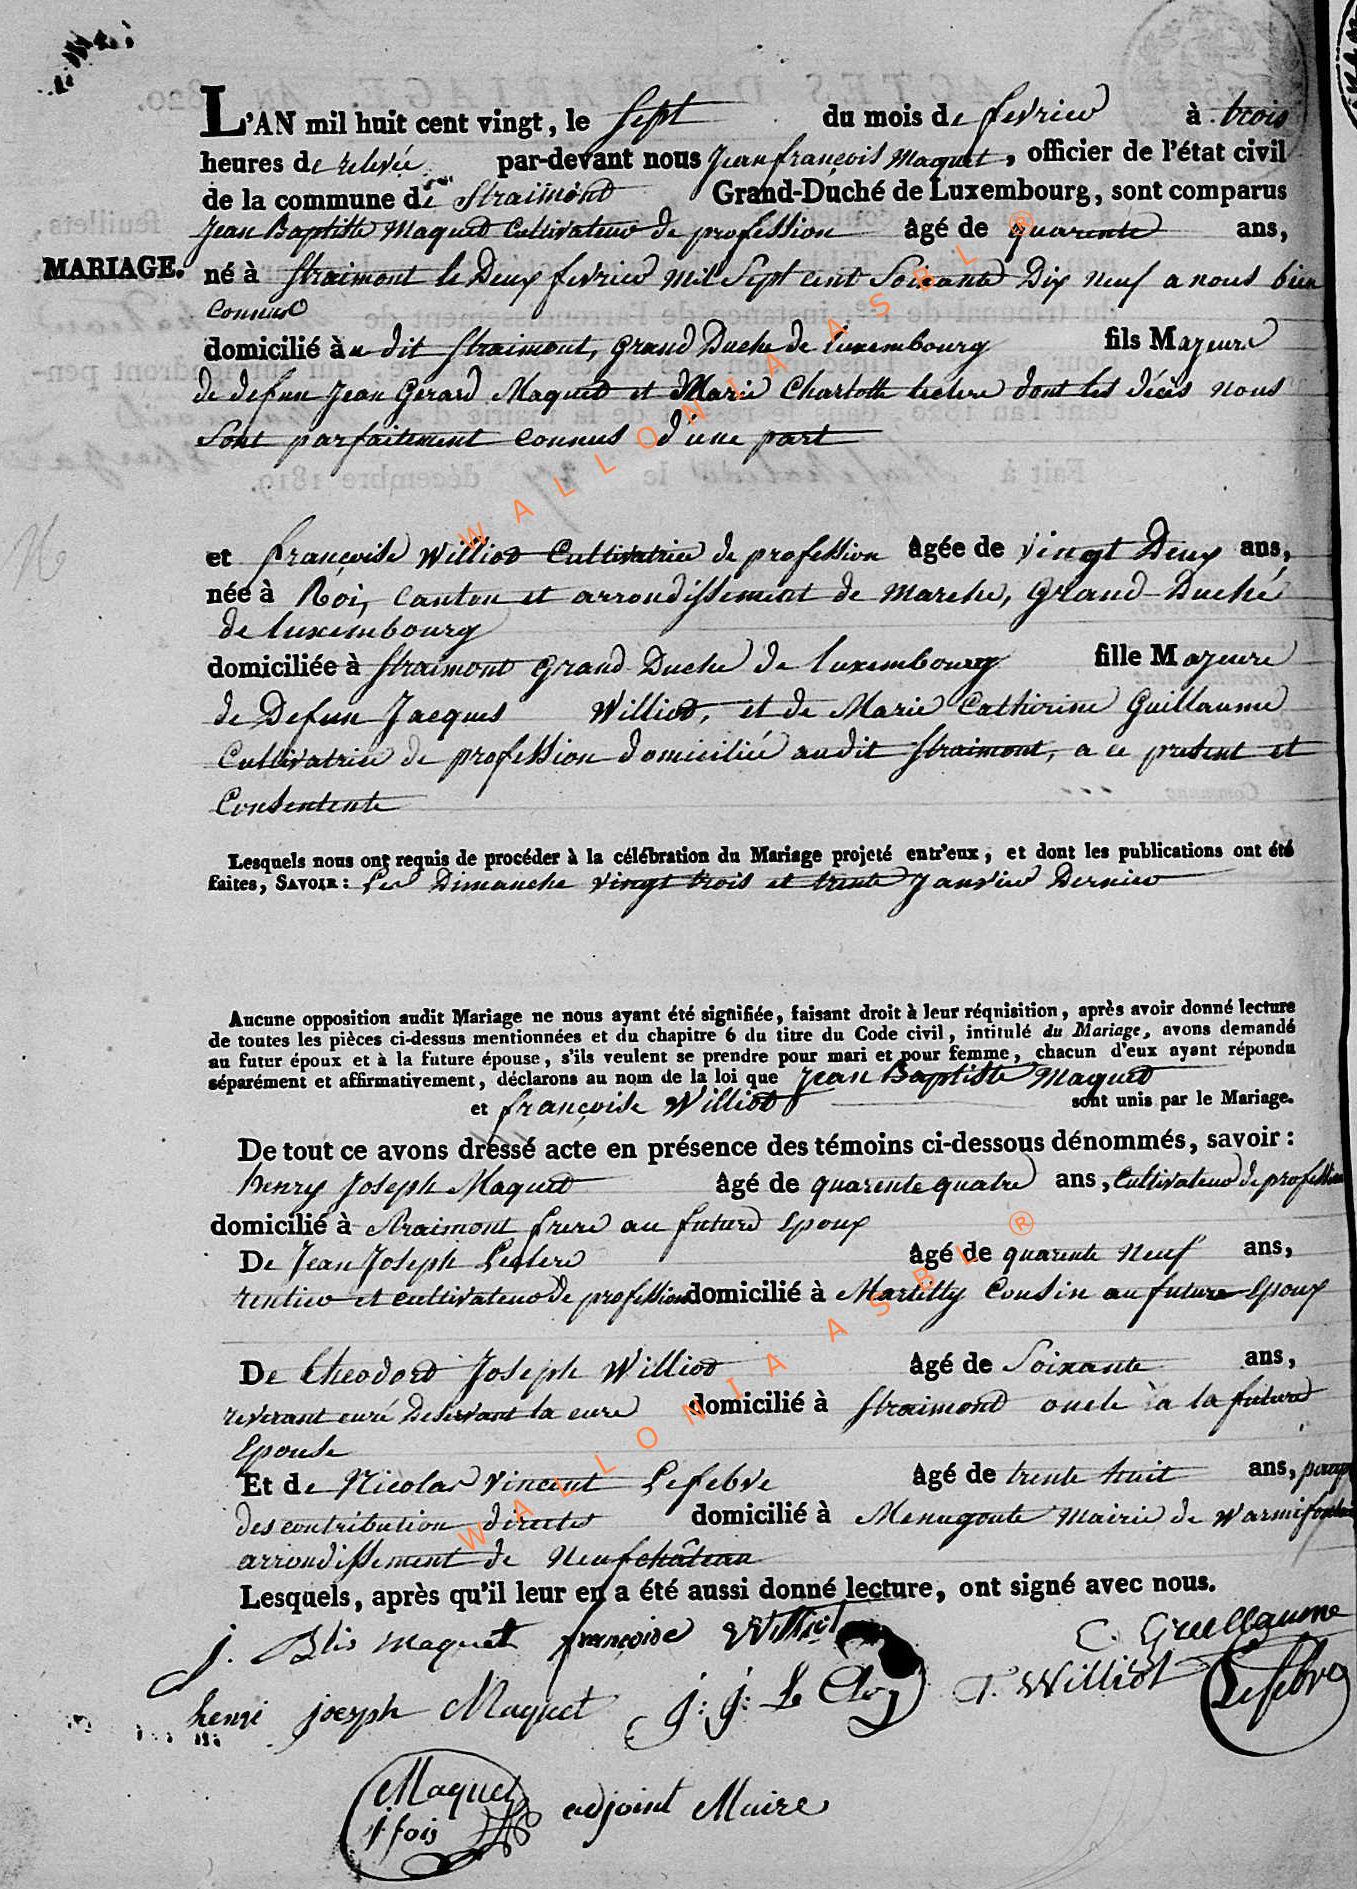 L'AN mil huit cent vingt, le Sept du mois de fevrier à trois
heures de relevée par-devant nous Jean françois Maquet, officier de l'état civil
de la commune de Straimont Grand-Duché de Luxembourg, sont comparus
Jean Baptiste Maquet Cultivateur de profession âgé de quarente ans,
MARIAGE. né à Straimont le Deux fevrier mil Sept cent Soixante Dix neuf a nous bien
connus
domicilié à u dit Straimont, Grand Duche de luxembourg fils Majeure
de defun Jean Gerard Maquet et Marie Charlotte leclere dont les décès nous
Sont parfaitement connus d'une part
et françoise Williot Cultivatrice de profession âgée de vingt Deux ans,
née à Roi, canton et arrondissement de Marche, Grand Duché
de luxembourg
domiciliée à Straimont Grand Duche de luxembourg fille Majeure
de Defun Jacques Williot, et de Marie Catherine Guillaume
Cultivatrice de profession domiciliée audit Straimont, a ce present et
Consentente
Lesquels nous ont requis de procéder à la célébration du Mariage projeté entr'eux, et dont les publications ont été
faites, SAVOIR: Les Dimanche vingt trois et trente Janvier Dernier
Aucune opposition audit Mariage ne nous ayant été signifiée, faisant droit à leur réquisition, après avoir donné lecture
de toutes les pièces ci-dessus mentionnées et du chapitre 6 du titre du Code civil, intitulé du Mariage, avons demandé
au futur époux et à la future épouse, s'ils veulent se prendre pour mari et pour femme, chacun d'eux ayant répondu
séparément et affirmativement, déclarons au nom de la loi que Jean Baptiste Maquet
et françoise Williot sont unis par le Mariage.
De tout ce avons dressé acte en présence des témoins ci-dessous dénommés, savoir:
henry Joseph Maquet âgé de quarente quatre ans, Cultivateur de profession
domicilié à Straimont frere au future Epoux
De Jean Joseph Leclere âgé de quarente neuf ans,
rentier et cultivateur de profession domicilié à Martilly Cousin au future Epoux
De theodord Joseph Williot âgé de Soixante ans,
reverant curé Deservant la cure domicilié à Straimont oncle à la future
Epouse
Et de Nicolas Vincent Lefebve âgé de trente huit ans,
des contribution directes domicilié à Menugoute Mairie de Warmifontaine
arrondissement de Neufchâteau
Lesquels, après qu'il leur en a été aussi donné lecture, ont signé avec nous.
j. Btis Maquet françoise Williot C. Guillaume
henri joseph Maquet j: j: Le Clerc T. Williot Lefebve
Maquet
j. fois adjoint Maire
WALLONIA ASBL ®
WALLONIA ASBL ®